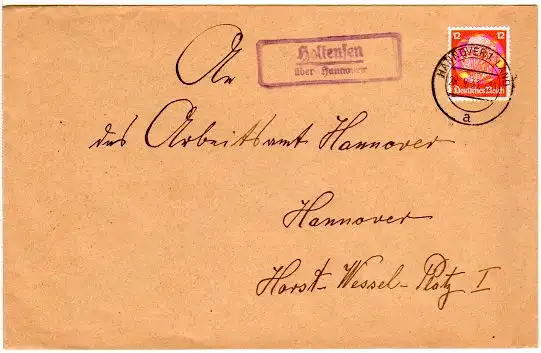 An
Holtensen
über Hannover
12 12
Deutsches Reich
a
des Arbeitsamt Hannover
Hannover
Horst-Wessel-Platz I